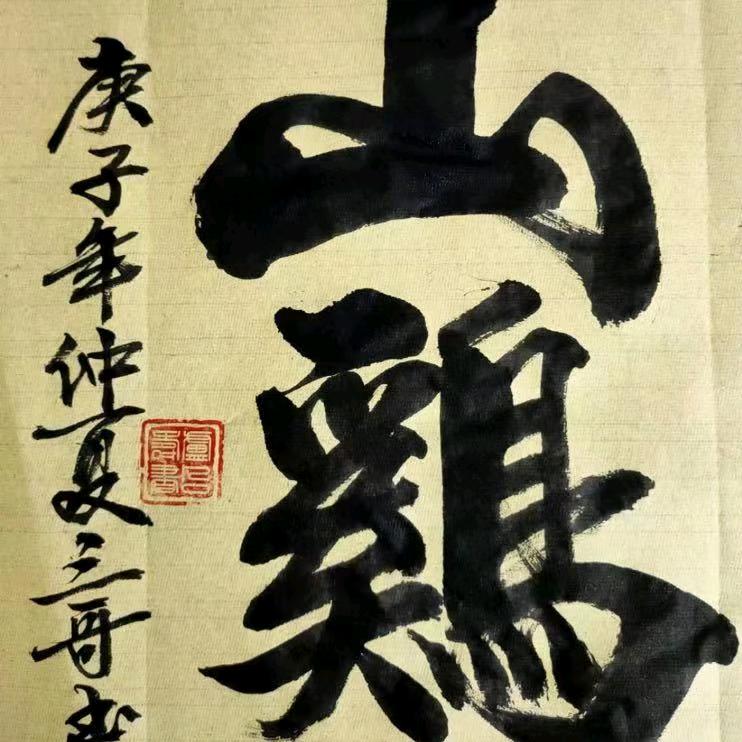 山鷄
庚子年仲夏三哥书